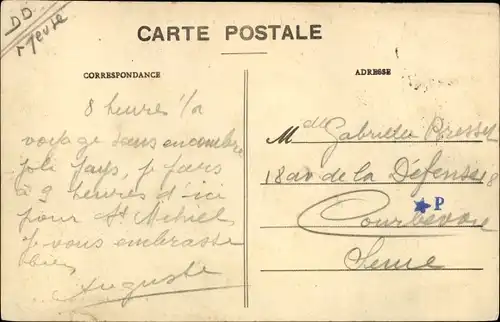 DD
Meuse
CARTE POSTALE
CORRESPONDANCE
ADRESSE
8 heures 1/2
voyage sans encombre
joli pays, je pars
à 9 heures d'ici
pour St Mihiel
Je vous embrasse
bien
Auguste
Mdlle Gabrielle
18 av de la Défense 8
Courbevoie
Seine
P